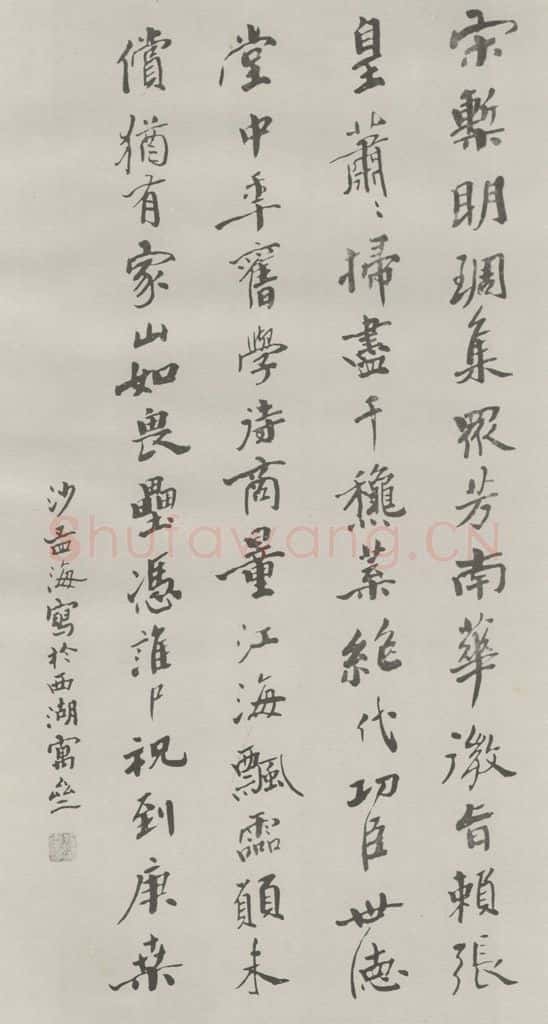 宋槧明琱集眾芳南華微旨賴張
皇蕭〻掃盡千龝葉絕代功臣世德
堂中年舊學待商量江海飄霝願未
償猶有家山如畏壘憑誰尸祝到庚桑
沙孟海寫於西湖寓
Shufawang.CN